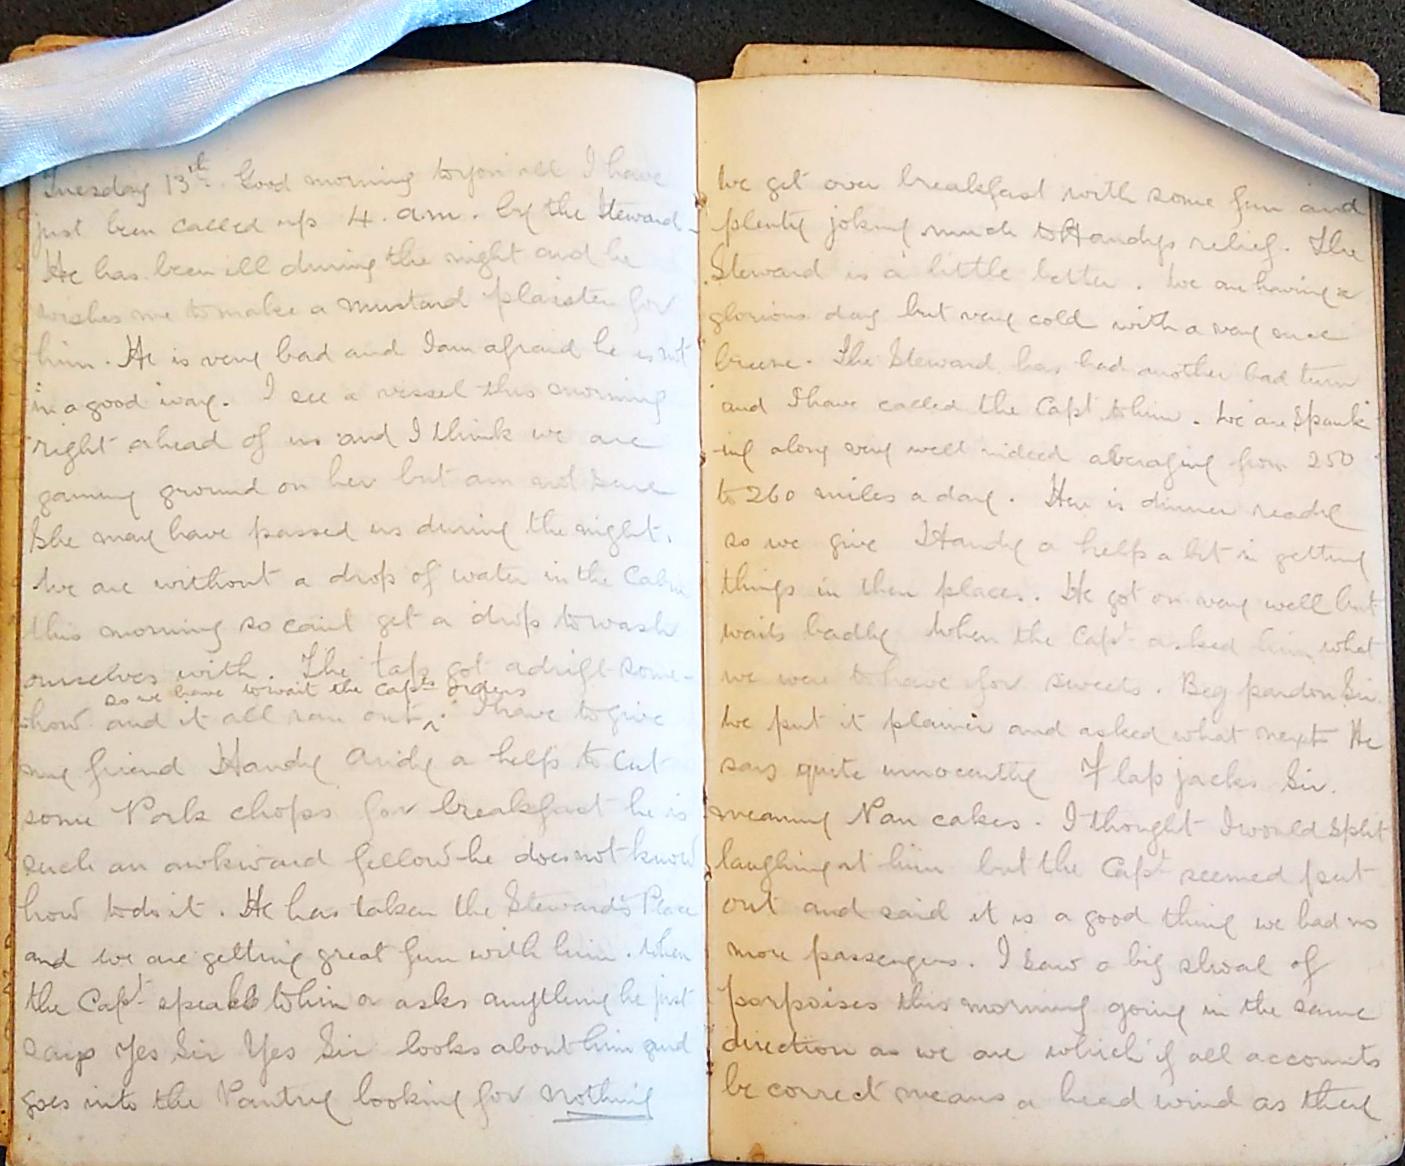 Tuesday 13th. Good morning to you all I have
just been called up 4. a.m. by the Steward.
He has been ill during the night and he
wishes me to make a mustard plaister for
him. He is very bad and I am afraid he is not
in a good way. I see a vessel this morning
right ahead of us and I think we are
gaining ground on her but am not sure
She may have passed us during the night.
We are without a drop of water in the Cabin
this morning so can't get a drop to wash
ourselves with. The taps got adrift some-
so we have to wait the Capts orders
how and it all ran out ^. I have to give
my friend Handy Andy a help to cut
some Pork chops for breakfast he is
such an awkward fellow he does not know
how to do it. He has taken the Steward's Place
and we are getting great fun with him. When
the Capt speaks to him or asks anything he just
says Yes Sir Yes Sir looks about him and
goes into the Pantry looking for nothing
We get over breakfast with some fun and
plenty joking much to Handys relief. The
Steward is a little better. We are having a
glorious day but very cold with a very nice
breeze. The Steward has had another bad turn
and I have called the Capt to him. We are Spank
-ing along very well indeed averaging from 250
to 260 miles a day. Here is dinner ready
so we give Handy a help a bit in getting
things in their places. He got on very well but
waits badly when the Capt asked him what
we were to have for sweets. Beg pardon Sir.
We put it plainer and asked what next He
says quite innocently Flap jacks Sir.
meaning Pan cakes. I thought I would Split
laughing at him but the Capt seemed put
out and said it is a good thing we had no
more passengers. I saw a big shoal of
porpoises this morning going in the same
direction as we are which if all accounts
be correct means a head wind as they